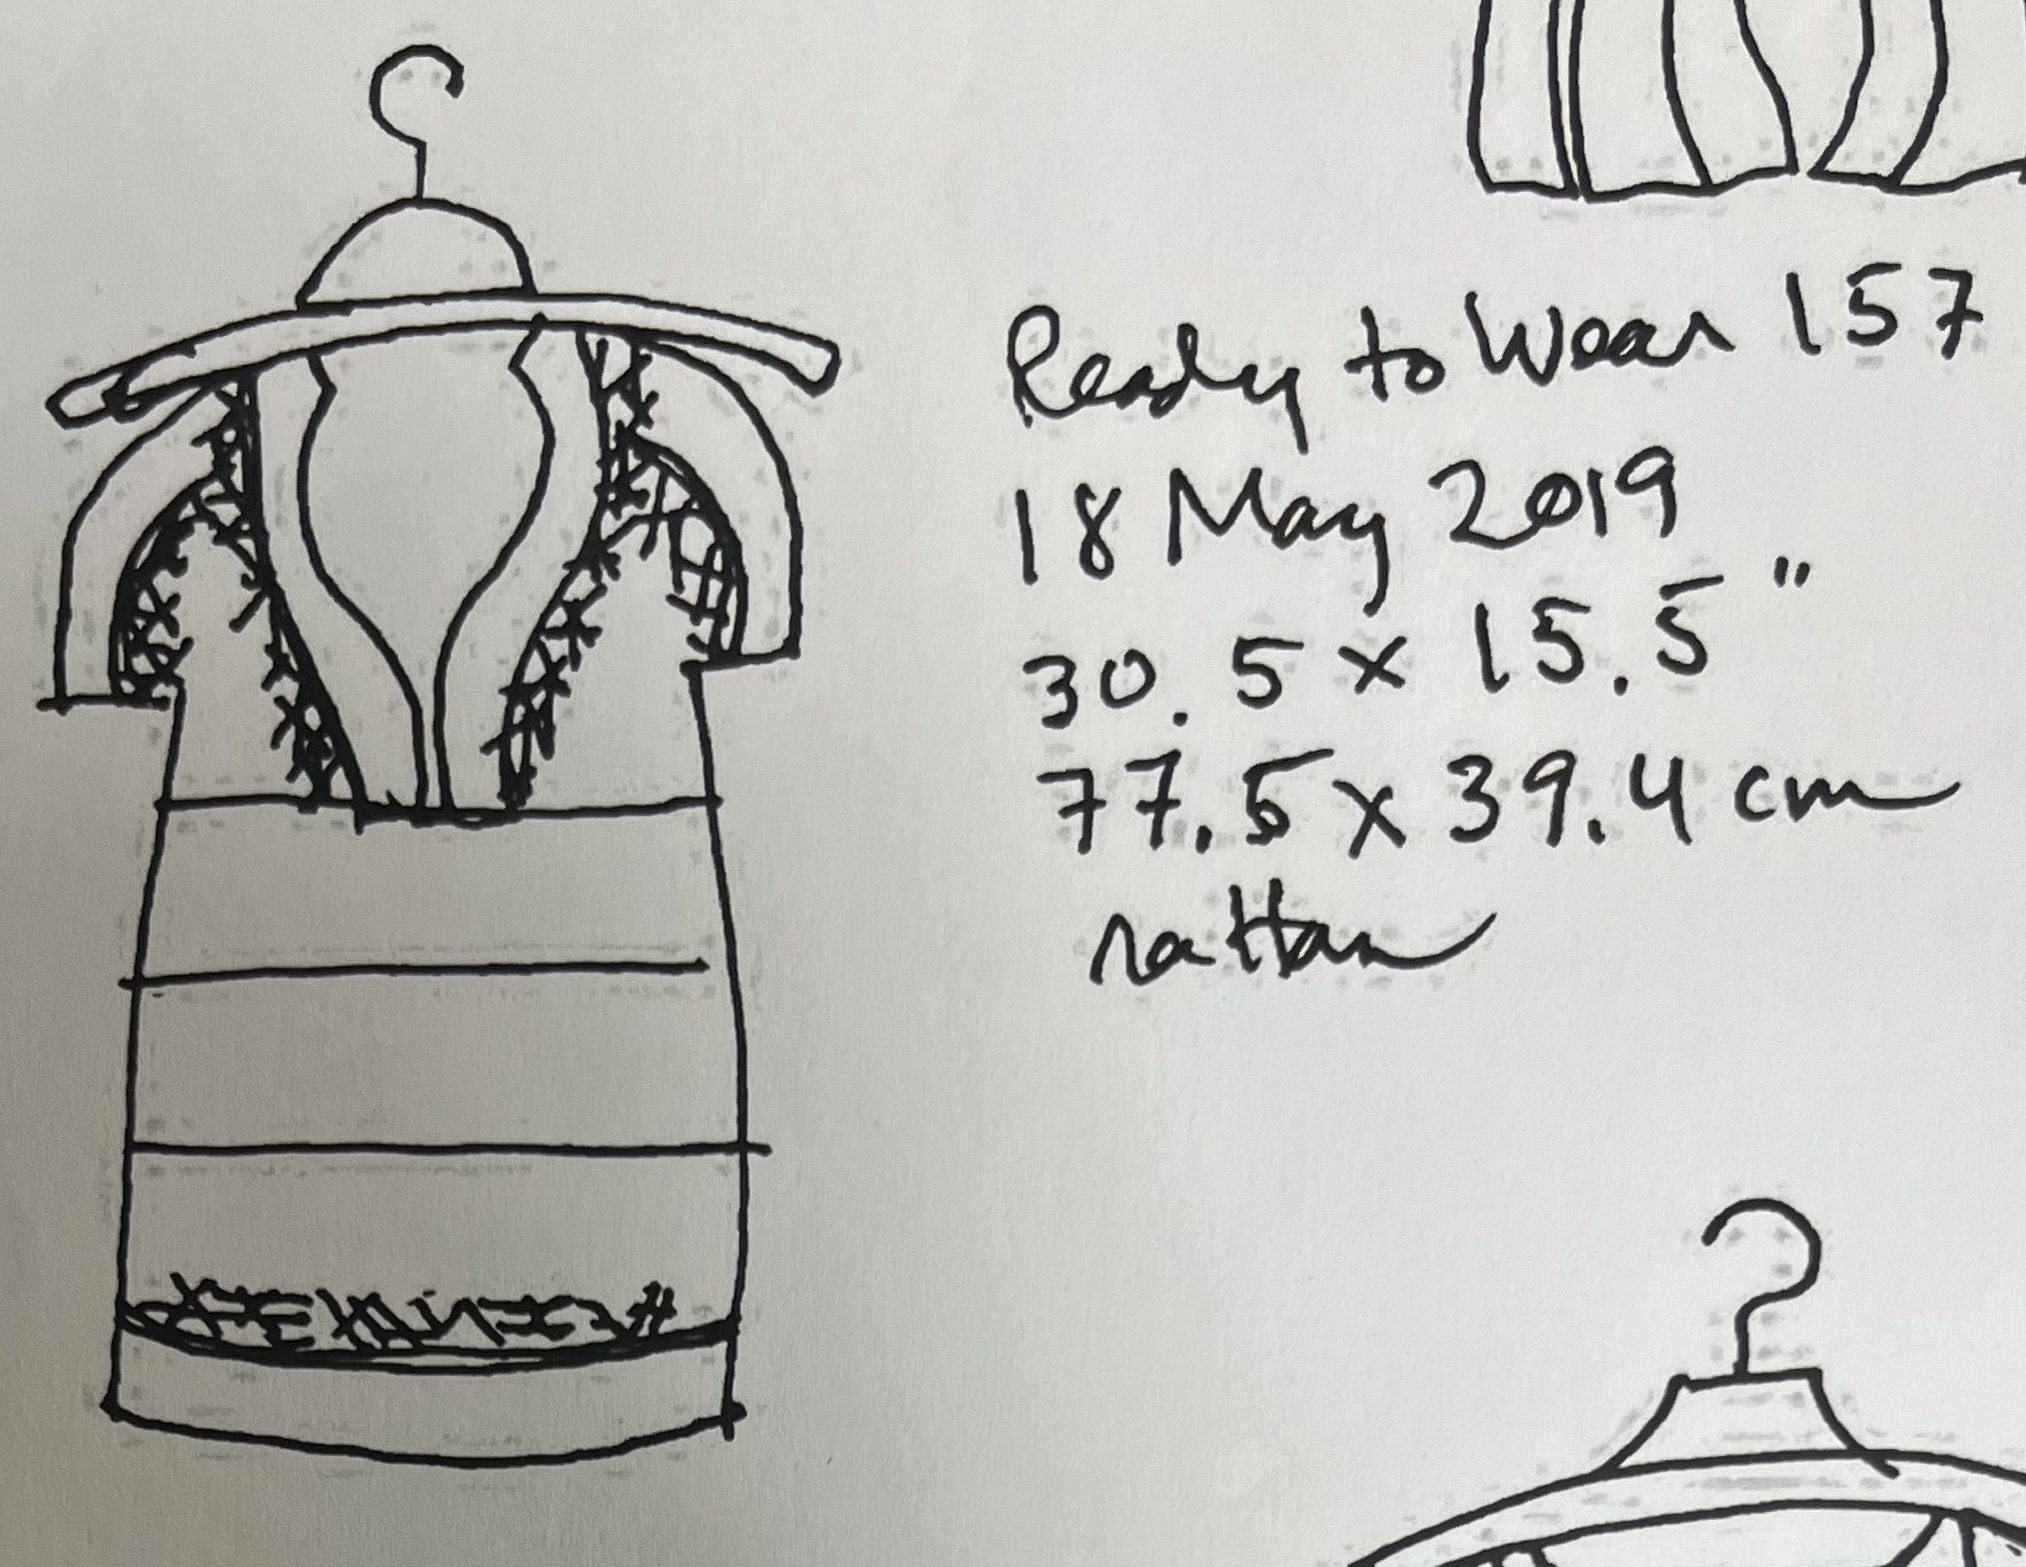 Ready to Wear 157
18 May 2019
30.5 x 15.5"
77.5 x 39.4 cm
rattan